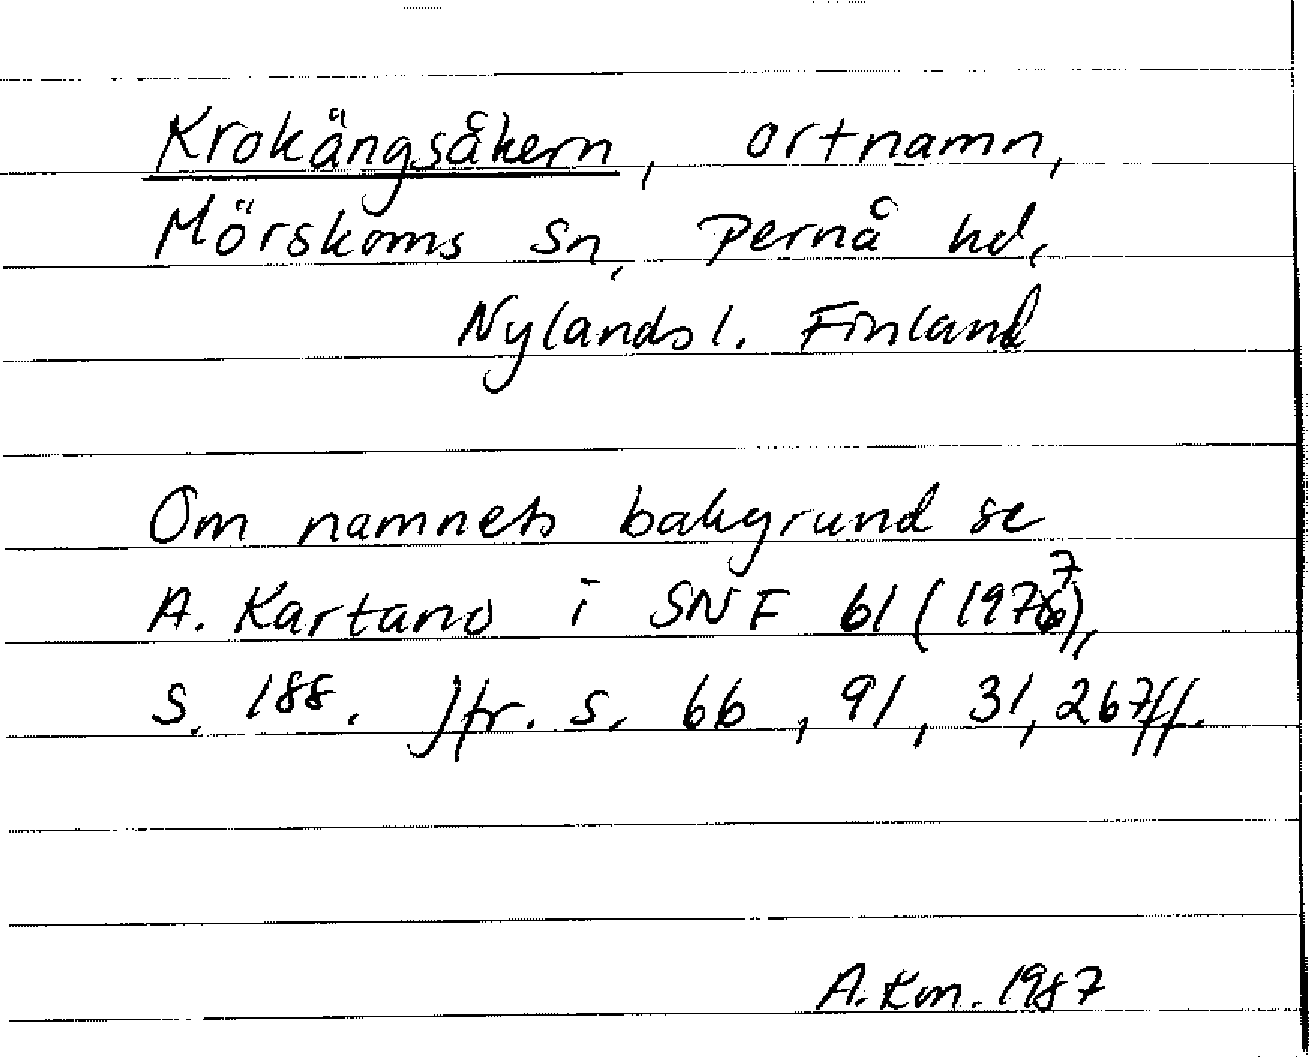 Krokängsåkern, ortnamn,
Mörskoms sn, Pernå hd,
Nylands l. Finland
Om namnets bakgrund se
A. Kartano i SNF 61 (1977),
s. 188. Jfr. s. 66, 91, 31, 267 ff.
A. Km. 1987